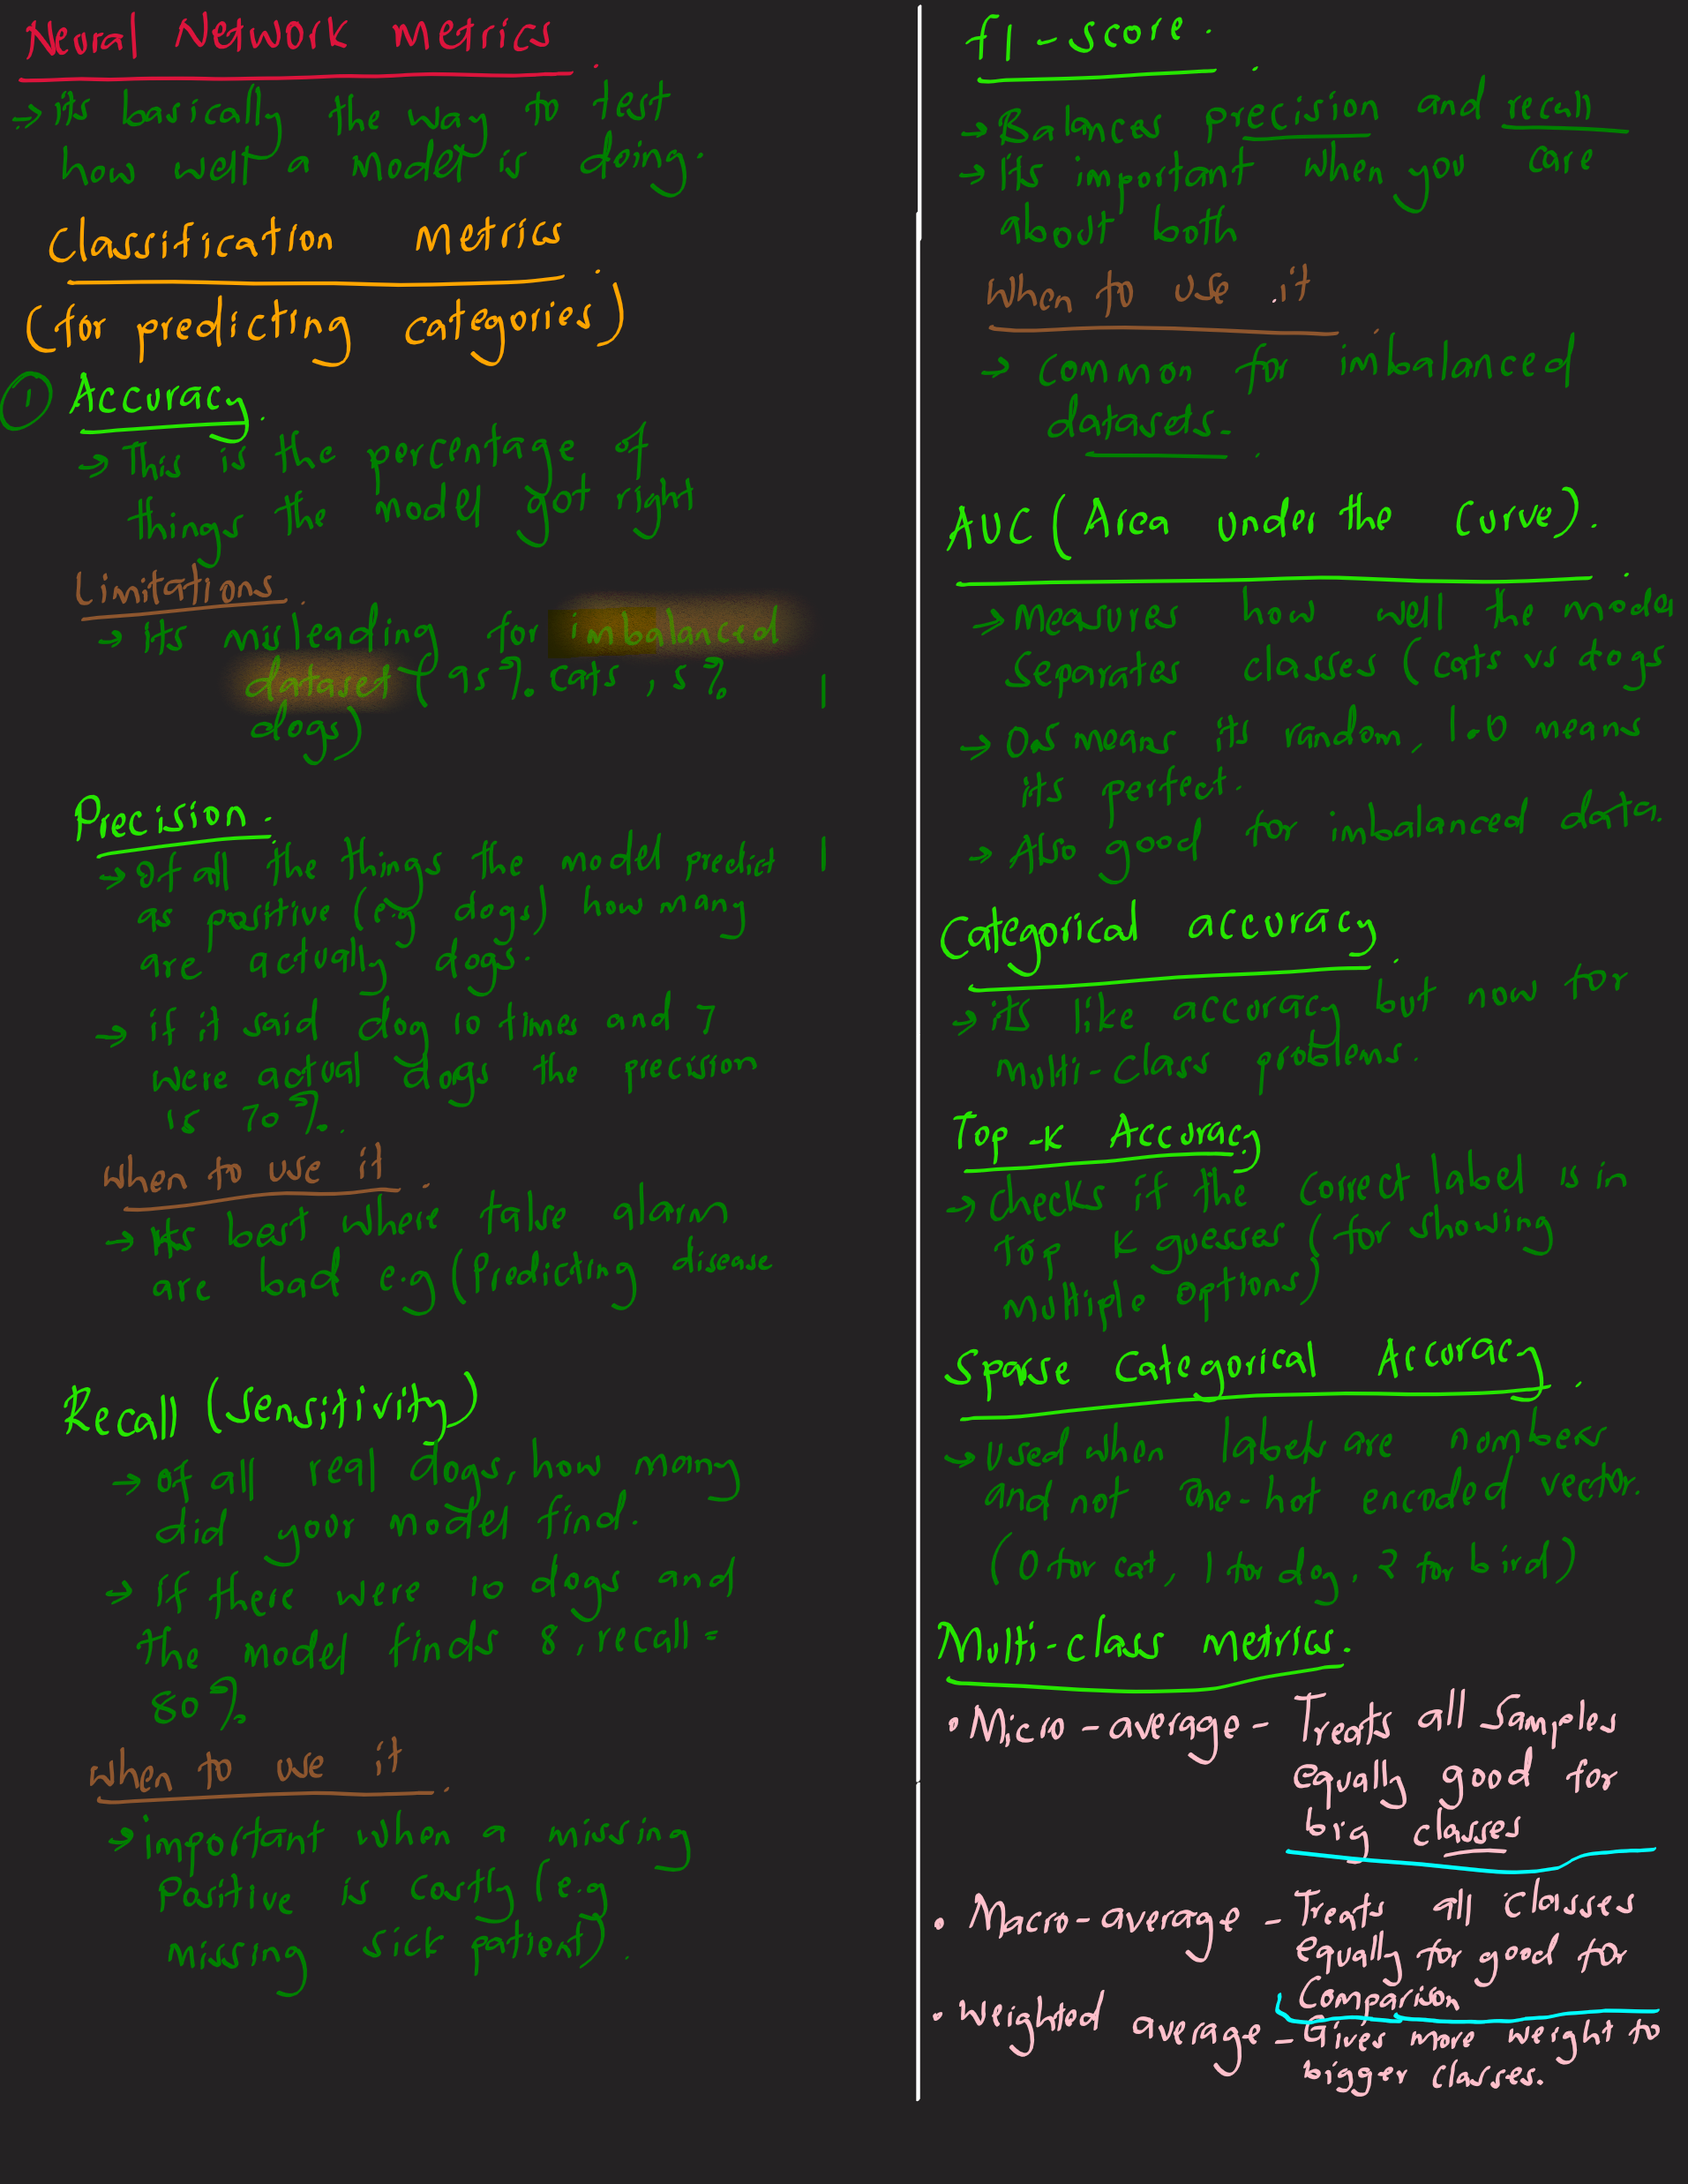 Neural Network metrics.
→ its basically the way to test
how well a model is doing.
Classification Metrics.
(for predicting categories)
1 Accuracy.
→ This is the percentage of
things the model got right
Limitations.
→ Its misleading for imbalanced
dataset (95% cats, 5%
dogs)
Precision.
→ Of all the things the model predict
as positive (e.g dogs) how many
are actually dogs.
→ if it said dog 10 times and 7
were actual dogs the precision
is 70%.
when to use it.
→ Its best where false alarm
are bad e.g (Predicting disease
Recall (Sensitivity)
→ of all real dogs, how many
did your model find.
→ If there were 10 dogs and
the model finds 8, recall =
80%
when to use it.
→ important when a missing
Positive is costly (e.g
missing sick patient).
f1-score.
→ Balances precision and recall
→ Its important when you care
about both
When to use it.
→ Common for imbalanced
datasets.
AUC (Area under the Curve).
→ Measures how well the model
Separates classes (cats vs dogs
→ 0.5 means its random, 1.0 means
its perfect.
→ Also good for imbalanced data.
Categorical accuracy.
→ its like accuracy but now for
Multi-Class problems.
Top-K Accuracy
→ Checks if the correct label is in
Top K guesses (for showing
multiple options)
Sparse Categorical Accuracy.
→ used when labels are numbers
and not one-hot encoded vector.
(0 for cat, 1 for dog, 2 for bird)
Multi-class metrics.
• Micro-average - Treats all Samples
equally good for
big classes
• Macro-average - Treats all Classes
equally for good for
Comparison
• Weighted average - Gives more weight to
bigger classes.